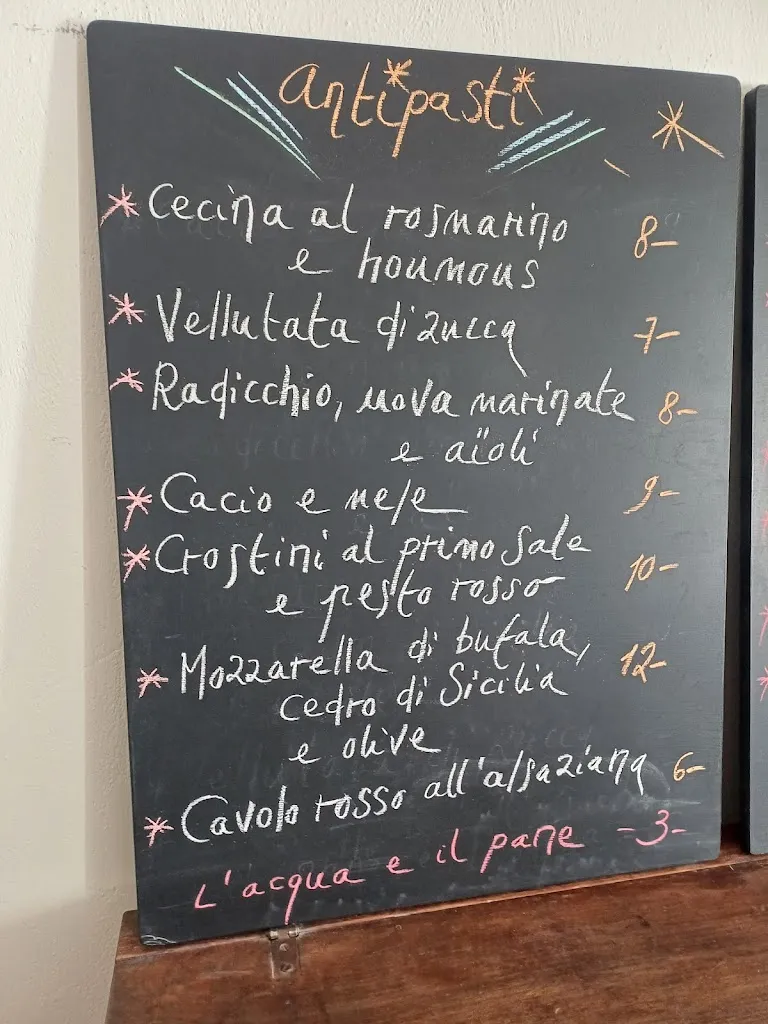 Antipasti
Cecina al rosmarino 8-
e houmous
Vellutata di zucca 7-
Radicchio, uova marinate 8-
e aïoli
Cacio e pepe 9-
Crostini al primo sale
e pesto rosso 10-
Mozzarella di bufala, 12-
Cedro di Sicilia
e olive
Cavolo rosso all'alsaziana 6-
L'acqua e il pane -3-